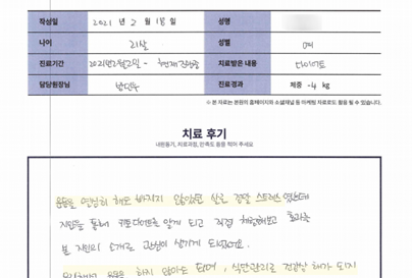 작성일 2021 년 2 월 18 일 성명
나이 21살 성별 여
진료기간 2021년 2월 2일 - 현재 진행중 치료받은 내용 다이어트
담당원장님 치료경과 체중 -4 kg
※ 본 자료는 본원의 홈페이지와 소셜채널 등 마케팅 자료로도 활용 될 수 있습니다.
치료 후기
내원동기, 치료과정, 만족도 등을 적어 주세요
운동을 열심히 해도 빠지지 않았던 살은 정말 스트레스 였는데
지인을 통해 키토다이어트를 알게 되고 직접 체험해보고 효과를
본 지인의 소개로 관심이 생기게 되었어요.
운동을 하지 않아도 되며, 식단관리로 건강상 해가 되지